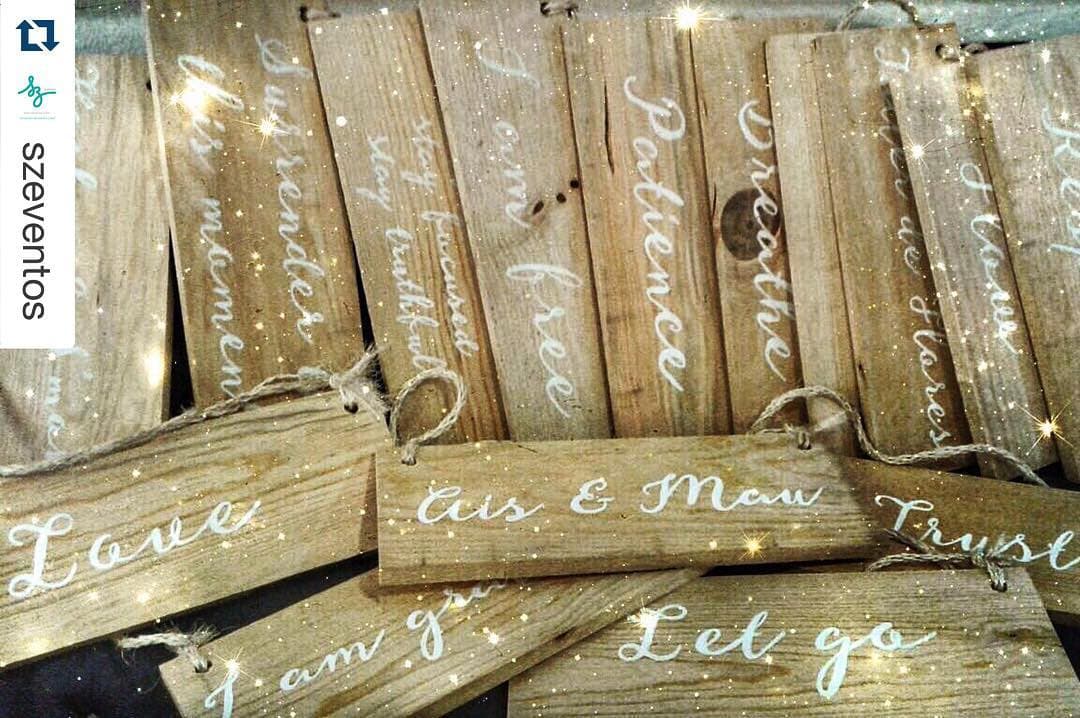 szeventos
Surrender
this momen
stay focused
stay truthful
I am free
Patience
Breathe
Flores
Flower
Keep
Love
Ais & Mau
Trust
I am gra
Let go